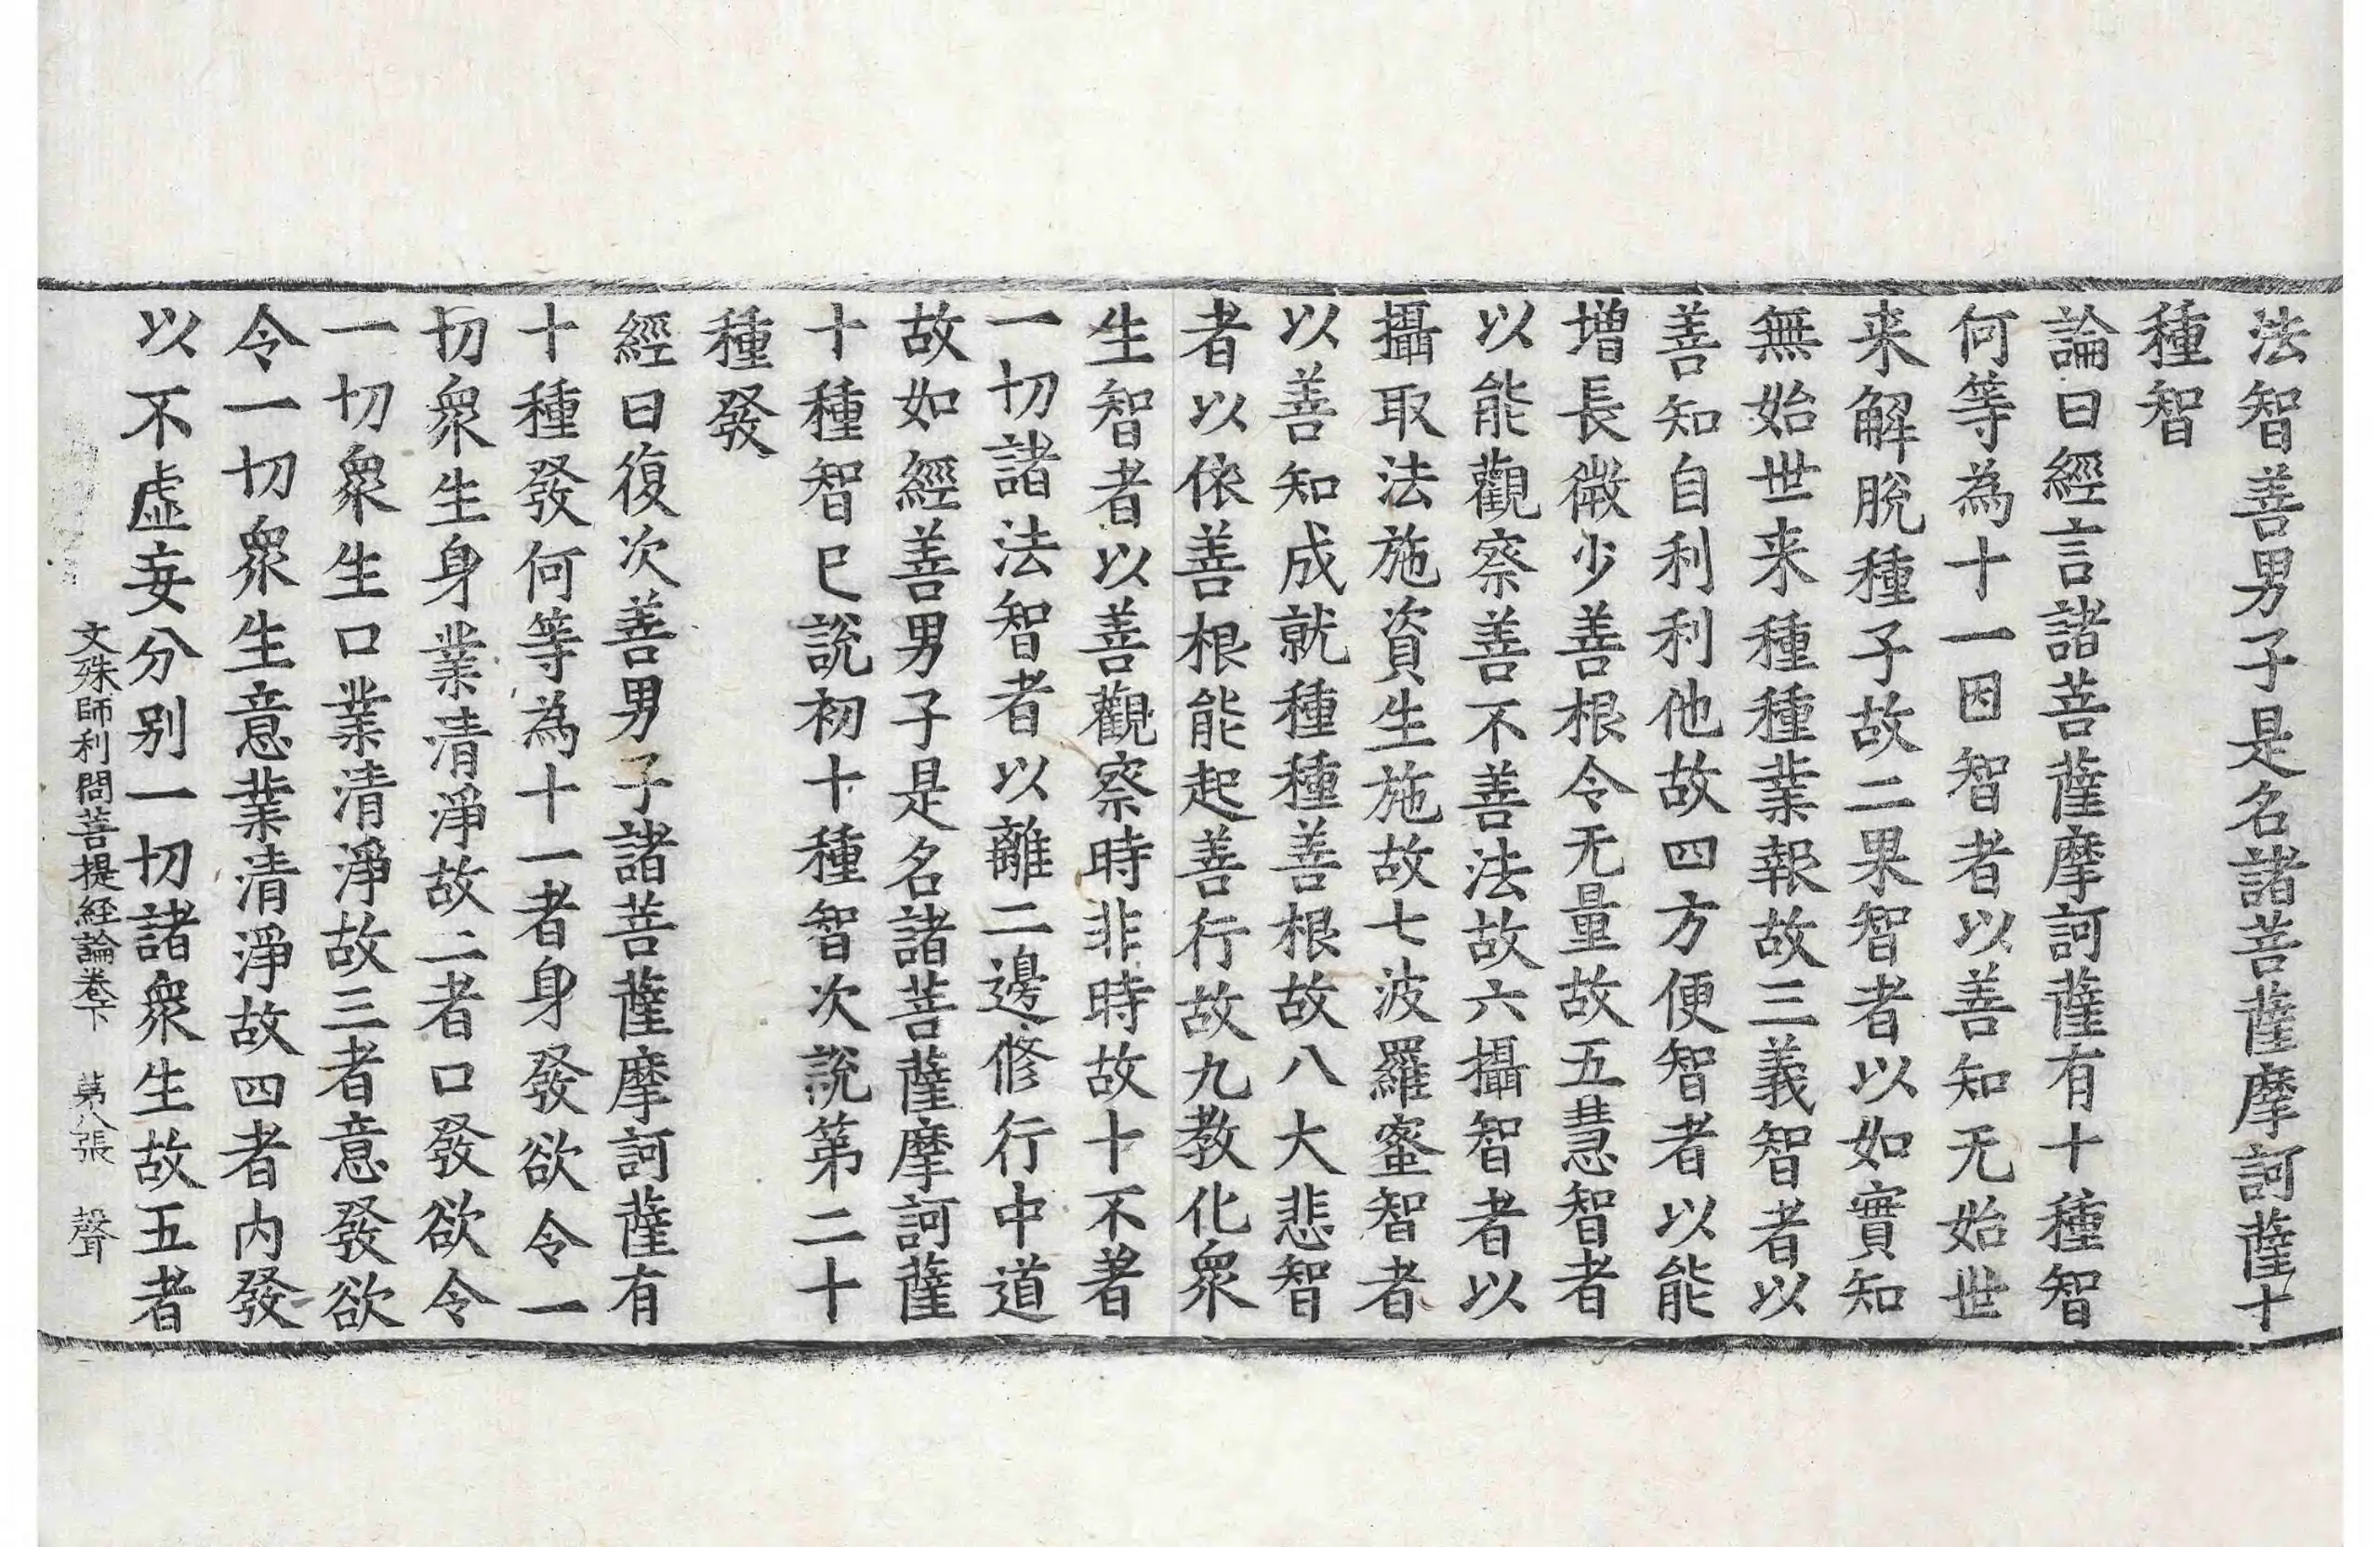 法智善男子是名諸菩薩摩訶薩十
種智
論曰經言諸菩薩摩訶薩有十種智
何等為十一因智者以善知无始世
来解脫種子故二果智者以如實知
無始世来種種業報故三義智者以
善知自利利他故四方便智者以能
增長微少善根令无量故五慧智者
以能觀察善不善法故六攝智者以
攝取法施資生施故七波羅蜜智者
以善知成就種種善根故八大悲智
者以依善根能起善行故九教化衆
生智者以善觀察時非時故十不著
一切諸法智者以離二邊修行中道
故如經善男子是名諸菩薩摩訶薩
十種智已說初十種智次說第二十
種發
經曰復次善男子諸菩薩摩訶薩有
十種發何等為十一者身發欲令一
切衆生身業清淨故二者口發欲令
一切衆生口業清淨故三者意發欲
令一切衆生意業清淨故四者内發
以不虚妄分别一切諸衆生故五者
文殊師利問菩提経論卷下　第八張　聲